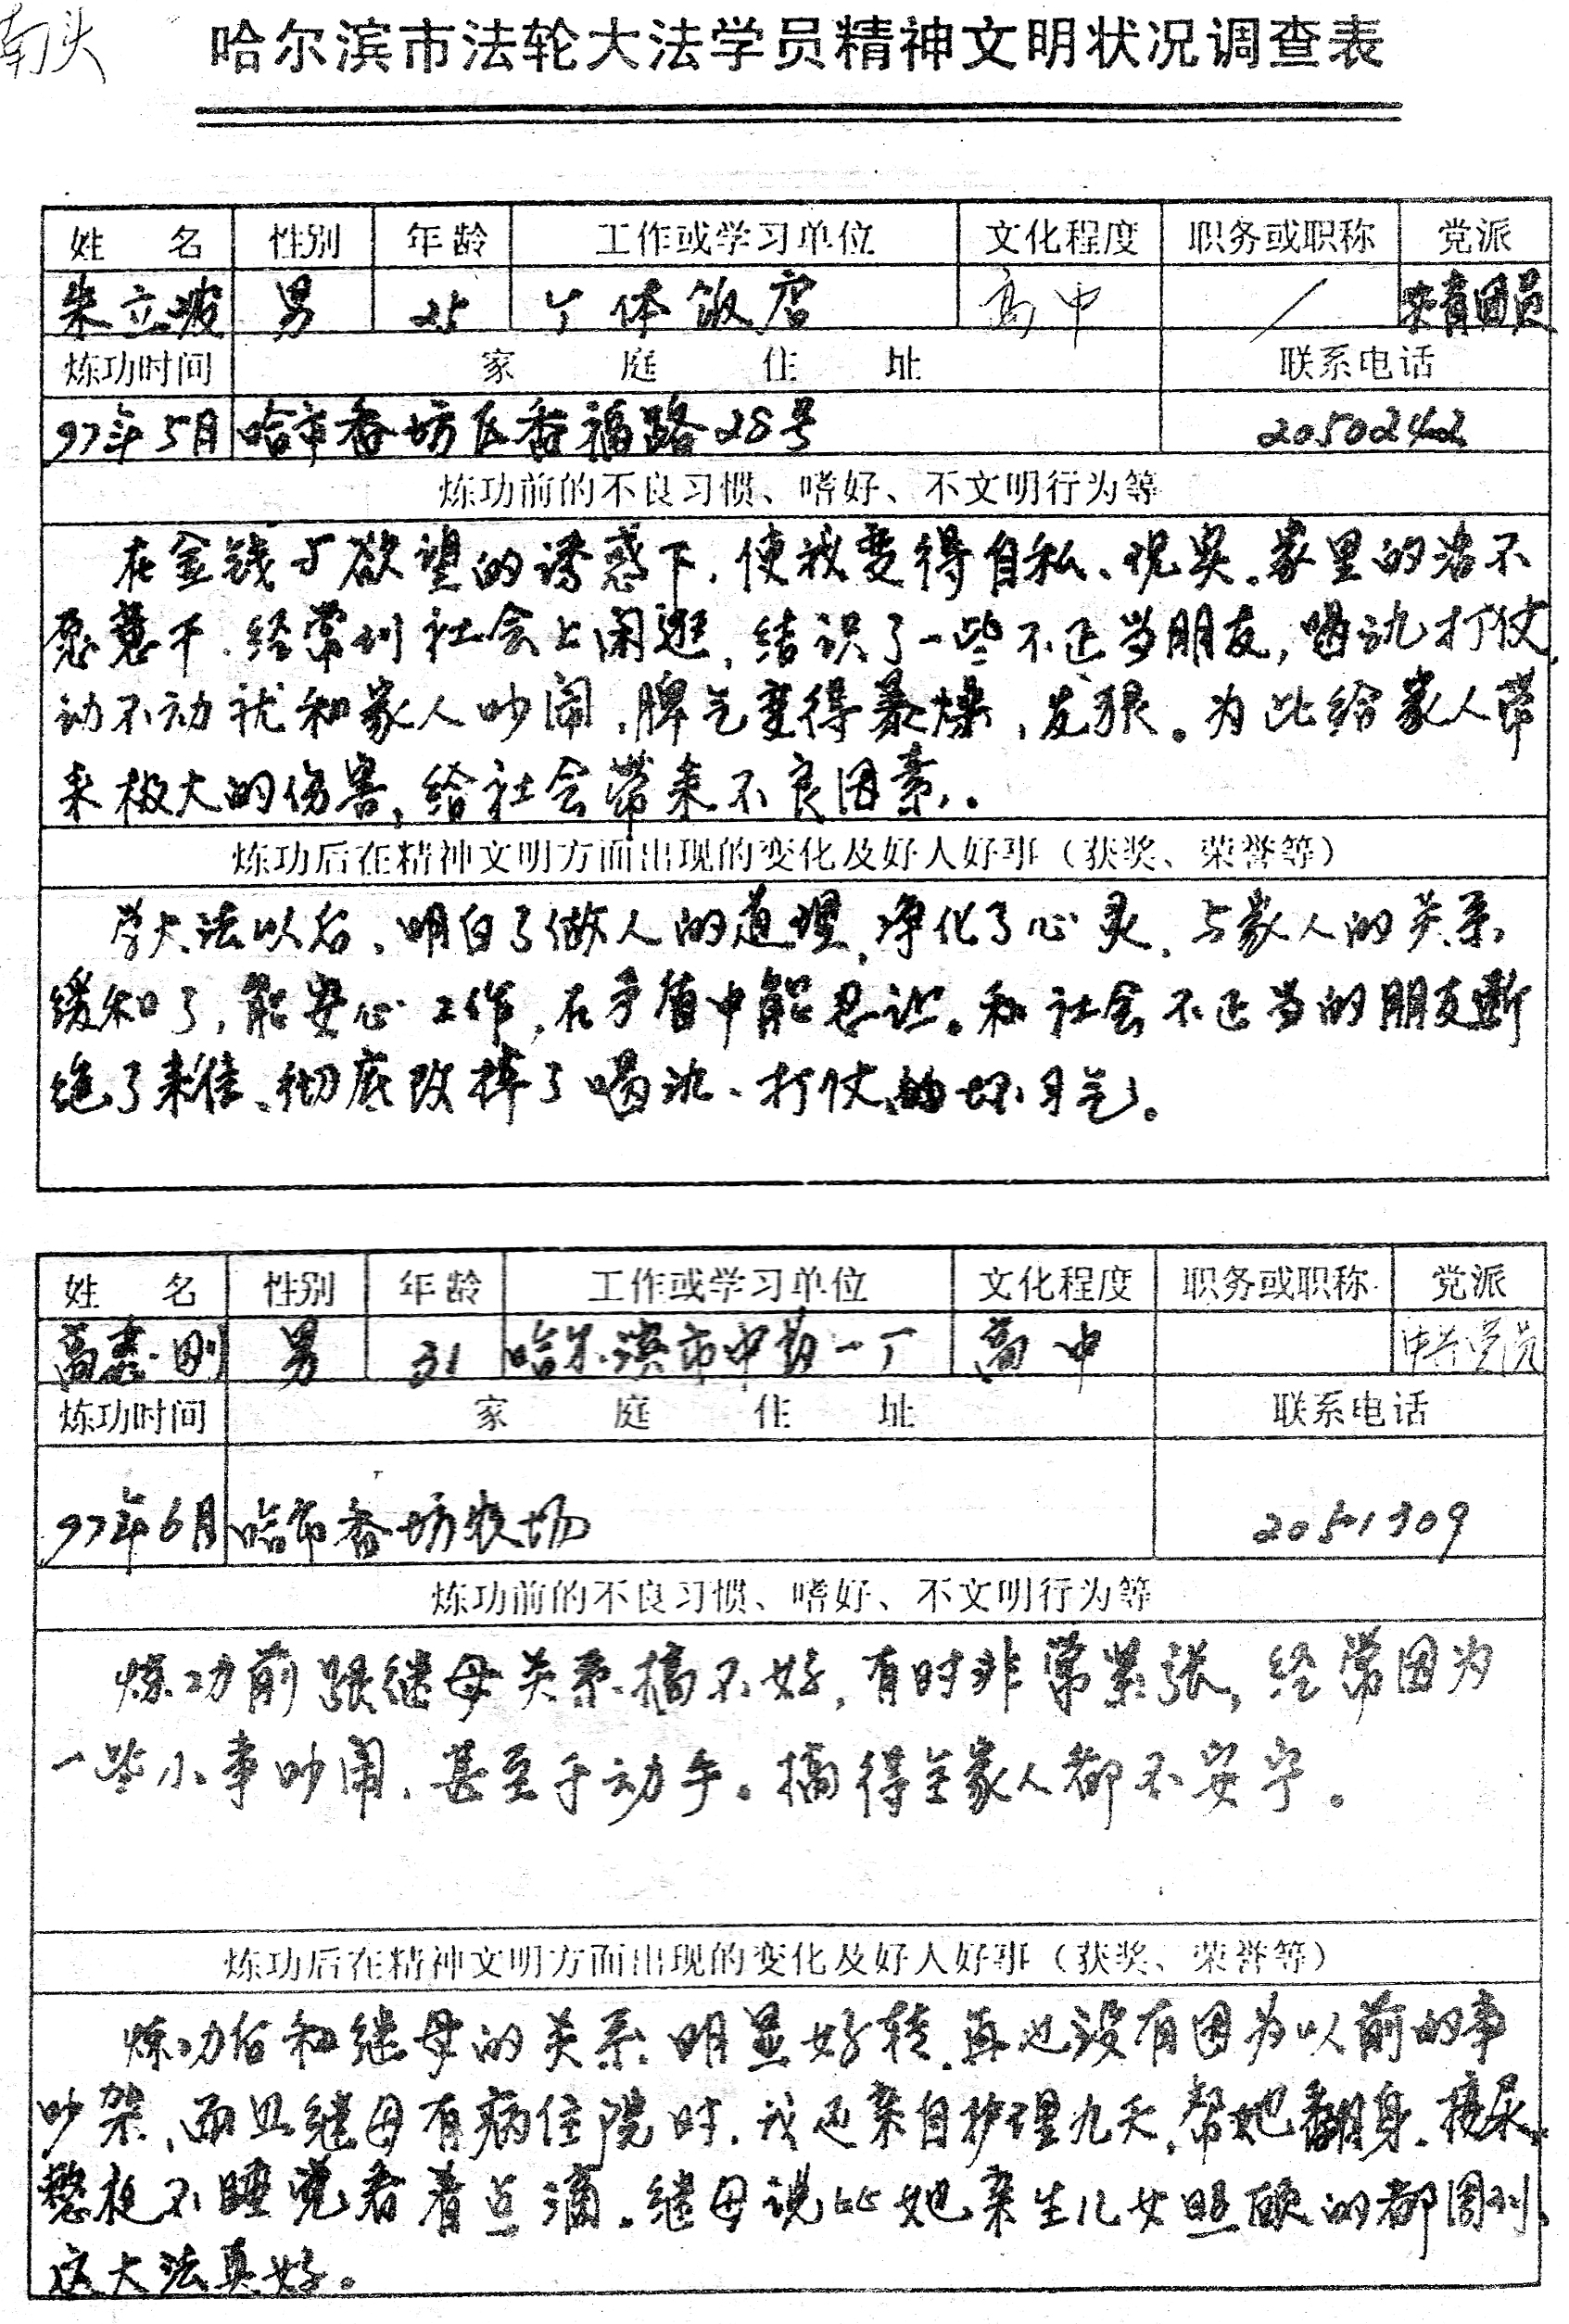 南头
哈尔滨市法轮大法学员精神文明状况调查表
姓 名 性别 年龄 工作或学习单位 文化程度 职务或职称 党派
朱立波 男 25 个体饭店 高中 / 共青团员
炼功时间 家 庭 住 址 联系电话
97年5月 哈市香坊区香福路28号 2050242
炼功前的不良习惯、嗜好、不文明行为等
在金钱与欲望的诱惑下,使我变得自私、现实。家里的活不
愿意干,经常到社会上闲逛,结识了一些不正当朋友,喝酒打仗,
动不动就和家人吵闹,脾气变得暴燥,发狠。为此给家人带
来极大的伤害,给社会带来不良因素。
炼功后在精神文明方面出现的变化及好人好事(获奖、荣誉等)
学大法以后,明白了做人的道理,净化了心灵,与家人的关系
缓和了,能安心工作,在矛盾中能忍让。和社会不正当的朋友断
绝了来往、彻底改掉了喝酒、打仗的坏习气。
姓 名 性别 年龄 工作或学习单位 文化程度 职务或职称 党派
高 刚 男 31 哈尔滨市中 一丁 高中
炼功时间 家 庭 住 址 联系电话
97年6月 哈市香坊农场 2051309
炼功前的不良习惯、嗜好、不文明行为等
炼功前跟继母关系搞不好,有时非常紧张,经常因为
一些小事吵闹,甚至于动手。搞得全家人都不安宁。
炼功后在精神文明方面出现的变化及好人好事(获奖、荣誉等)
炼功后和继母的关系明显好转,再也没有因为以前的事
吵架,而且继母有病住院时,我还亲自护理九天,帮她翻身、接尿,
整夜不睡觉看着点滴。继母说比她亲生儿女照顾的都周到,
这大法真好。